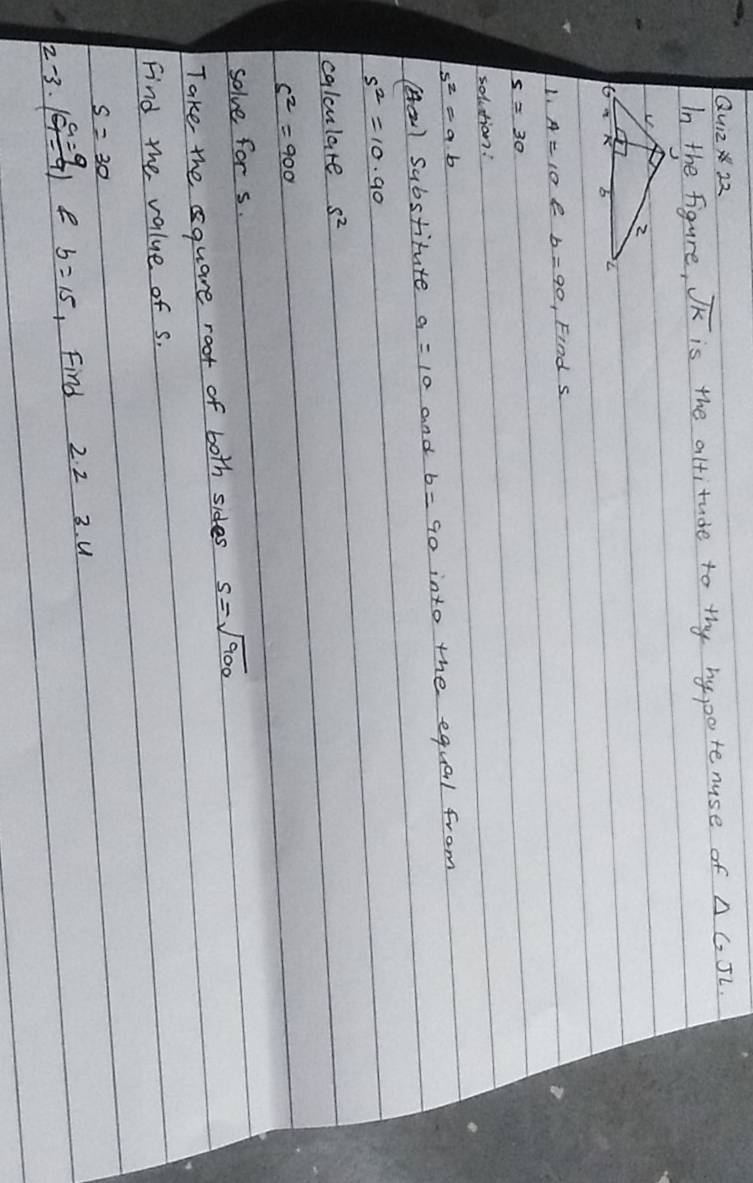 Quiz # 22
In the figure, JK is the altitude to thy hypotenuse of Δ GJL.
J
U
z
G
a
K
b
L
1. A = 10 & b = 90, Find s
s = 30
solution:
s² = a.b
substitute a = 10 and b = 90 into the equal from
s² = 10.90
calculate s²
s² = 900
Solve for s.
Take the square root of both sides s = √900
Find the value of s.
s = 30
a = 9
2-3. & b = 15, Find 2.z 3.u